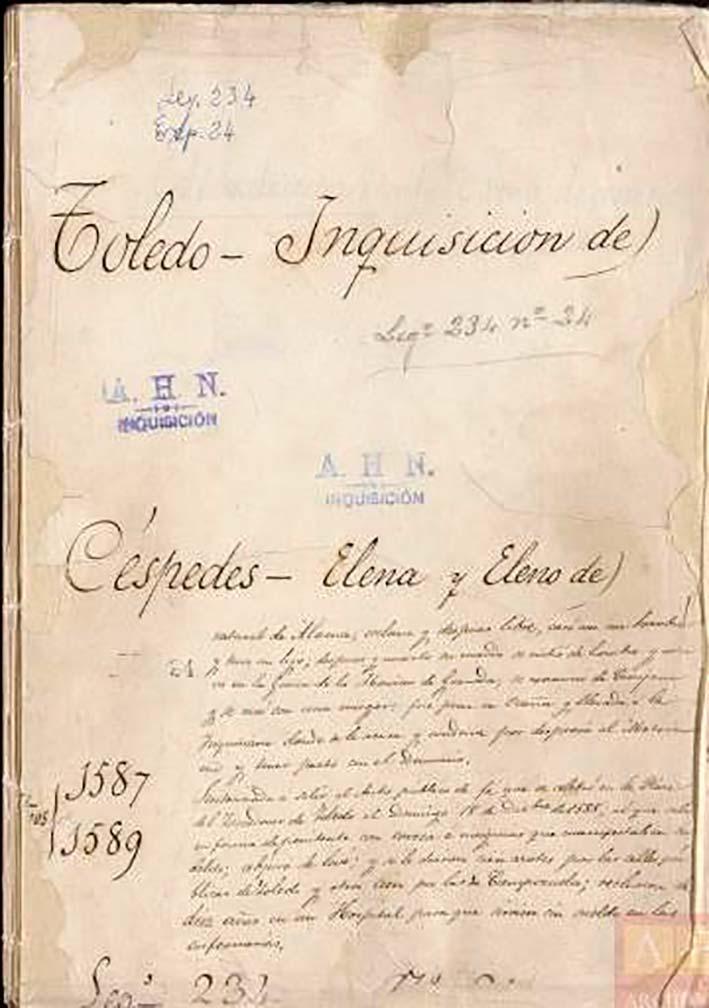 Leg. 234
Exp. 24
Toledo - Inquisicion de)
Legº 234 nº 24
A. H. N.
INQUISICIÓN
A. H. N.
INQUISICIÓN
Céspedes - Elena y Eleno de)
natural de Alhama, esclava y despues libre, casó con un hombre
y tuvo un hijo; despues y muerto su marido se vistió de hombre y
en la guerra de los Moriscos de Granada, se examinó de Cirujano
y se casó con una muger: fué presa en Ocaña y llevada a la
Inquisicion donde se le acusa y condena por desprecio al Matrimo
nio y tener pacto con el Demonio.
24
1587
1589
Sentenciada a salir al Auto publico de fé que se celebró en la Plaza
del Zocodover de Toledo el domingo 18 de Diciembre de 1588, al que salió
en forma de penitente con coroza e insignias que manifestaban su
delito; abjuró de leví: y se le dieron cien azotes por las calles pú
blicas de Toledo y otros cien por las de Cienpozuelos; reclusion de
diez años en un Hospital para que sirva sin sueldo en las
enfermerias.
Legº 234